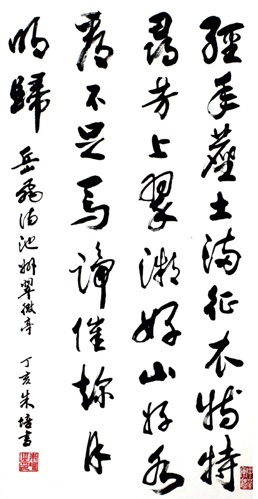 經年塵土滿征衣特特
尋芳上翠微好山好水
看不足馬蹄催趁月
明歸
岳飛泊池州翠微亭 丁亥朱培書